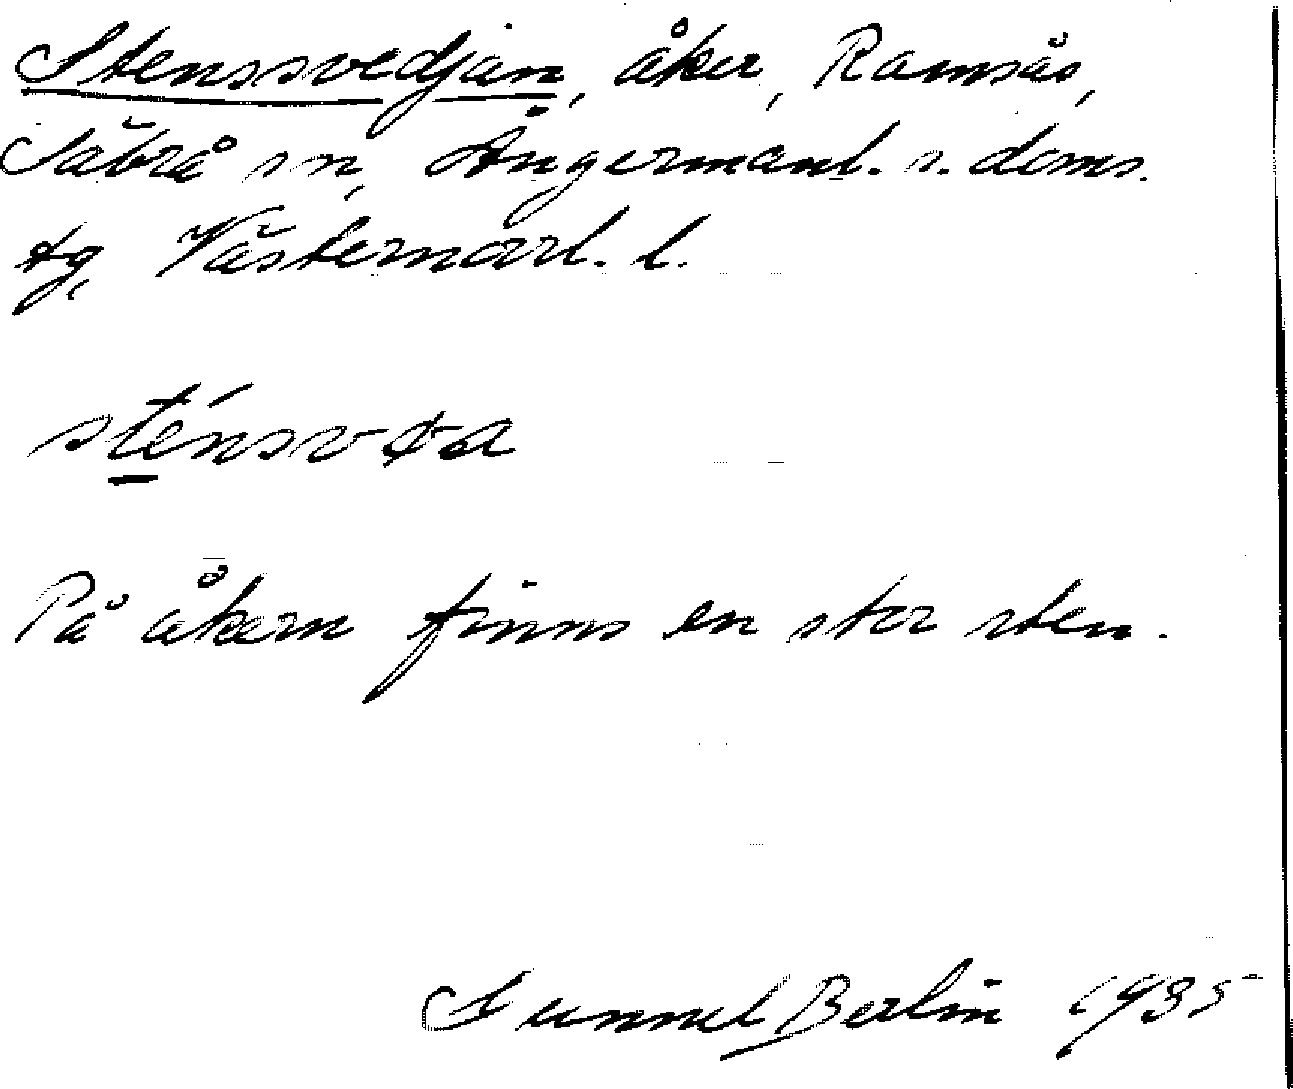 Stenssvedjan, åker, Ramsås,
Säbrå sn, Ångermanl. s. doms.
tg, Västernorrl. l.
På åkern finns en stor sten.
Gunnel Berlin 1935